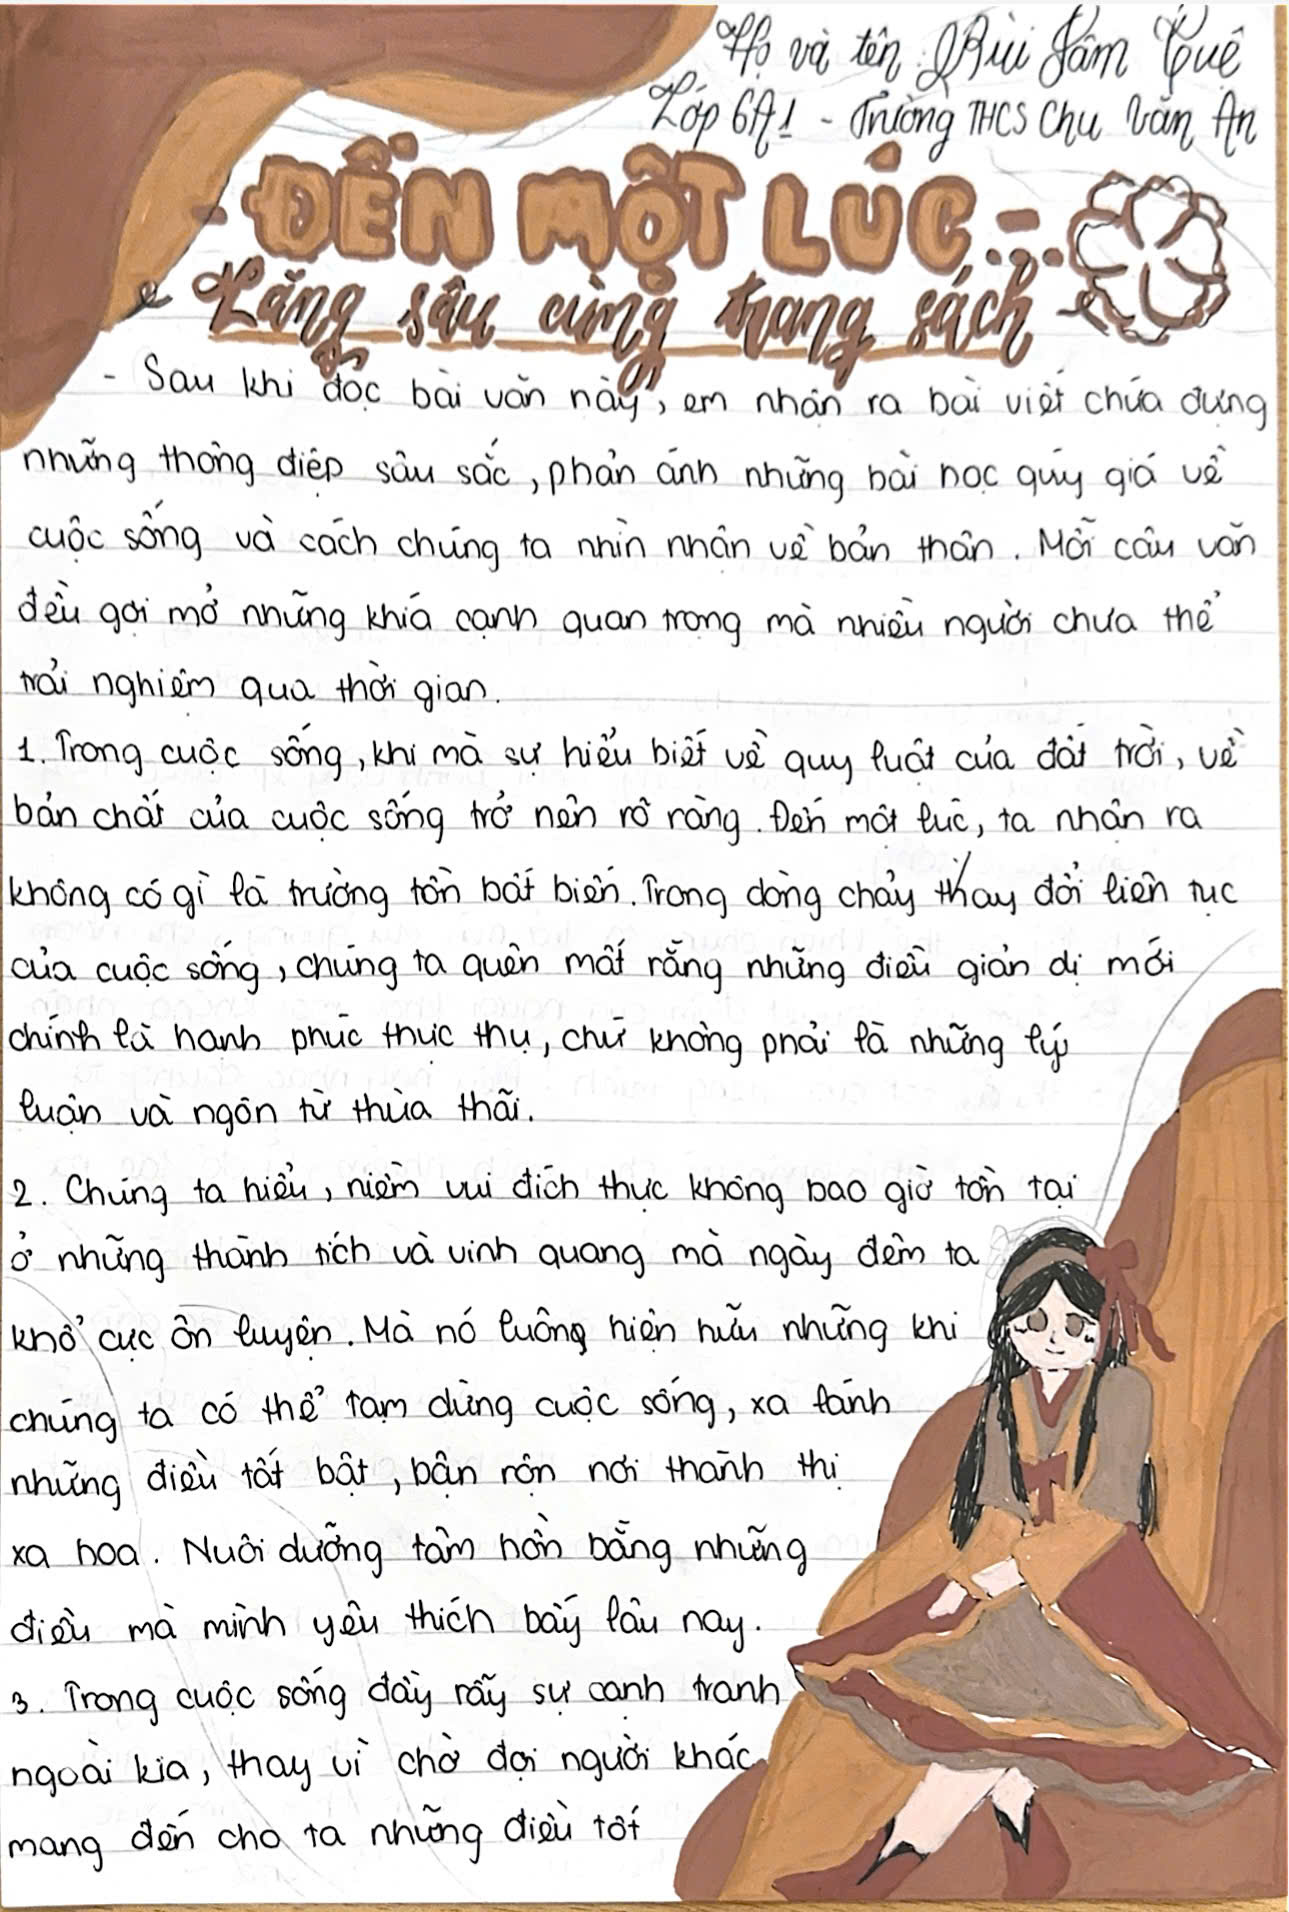 Họ và tên: Bùi Tâm Tuệ
Lớp 6A1 - Trường THCS Chu Văn An
- ĐẾN MỘT LÚC -
Lắng sâu cùng trang sách
- Sau khi đọc bài văn này, em nhận ra bài viết chứa đựng
những thông điệp sâu sắc, phản ánh những bài học quý giá về
cuộc sống và cách chúng ta nhìn nhận về bản thân. Mỗi câu văn
đều gợi mở những khía cạnh quan trọng mà nhiều người chưa thể
trải nghiệm qua thời gian.
1. Trong cuộc sống, khi mà sự hiểu biết về quy luật của đất trời, về
bản chất của cuộc sống trở nên rõ ràng. Đến một lúc, ta nhận ra
không có gì là trường tồn bất biến. Trong dòng chảy thay đổi liên tục
của cuộc sống, chúng ta quên mất rằng những điều giản dị mới
chính là hạnh phúc thực thụ, chứ không phải là những lý
luận và ngôn từ thừa thãi.
2. Chúng ta hiểu, niềm vui đích thực không bao giờ tồn tại
ở những thành tích và vinh quang mà ngày đêm ta
khổ cực ôn luyện. Mà nó luông hiện hữu những khi
chúng ta có thể tạm dừng cuộc sống, xa lánh
những điều tất bật, bận rộn nơi thành thị
xa hoa. Nuôi dưỡng tâm hồn bằng những
điều mà mình yêu thích bấy lâu nay.
3. Trong cuộc sống đầy rẫy sự cạnh tranh
ngoài kia, thay vì chờ đợi người khác
mang đến cho ta những điều tốt